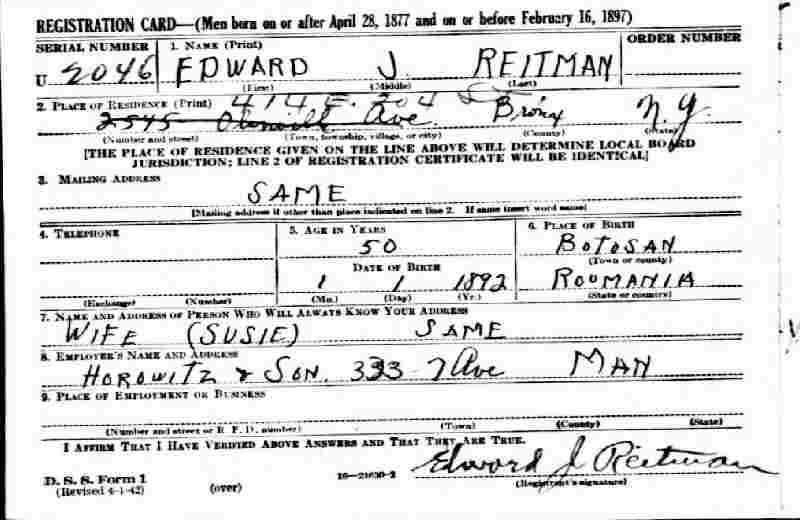 REGISTRATION CARD—(Men born on or after April 28, 1877 and on or before February 16, 1897)
SERIAL NUMBER 1. NAME (Print) ORDER NUMBER
U 2046 EDWARD J. REITMAN
(First) (Middle) (Last)
2. PLACE OF RESIDENCE (Print) 414 E. 204 ST
2545 Ave Bronx N.Y.
(Number and street) (Town, township, village, or city) (County) (State)
[THE PLACE OF RESIDENCE GIVEN ON THE LINE ABOVE WILL DETERMINE LOCAL BOARD
JURISDICTION; LINE 2 OF REGISTRATION CERTIFICATE WILL BE IDENTICAL]
3. MAILING ADDRESS
SAME
[Mailing address if other than place indicated on line 2. If same insert word same]
4. TELEPHONE 5. AGE IN YEARS 6. PLACE OF BIRTH
50 BOTOSAN
(Town or county)
DATE OF BIRTH
1 1 1892 ROUMANIA
(Exchange) (Number) (Mo.) (Day) (Yr.) (State or country)
7. NAME AND ADDRESS OF PERSON WHO WILL ALWAYS KNOW YOUR ADDRESS
WIFE (SUSIE) SAME
8. EMPLOYER'S NAME AND ADDRESS
HOROWITZ & SON. 333-7 Ave MAN
9. PLACE OF EMPLOYMENT OR BUSINESS
(Number and street or R. F. D. number) (Town) (County) (State)
I AFFIRM THAT I HAVE VERIFIED ABOVE ANSWERS AND THAT THEY ARE TRUE.
D. S. S. Form 1 16—21630-2 Edward J Reitman
(Revised 4-1-42) (over) (Registrant's signature)